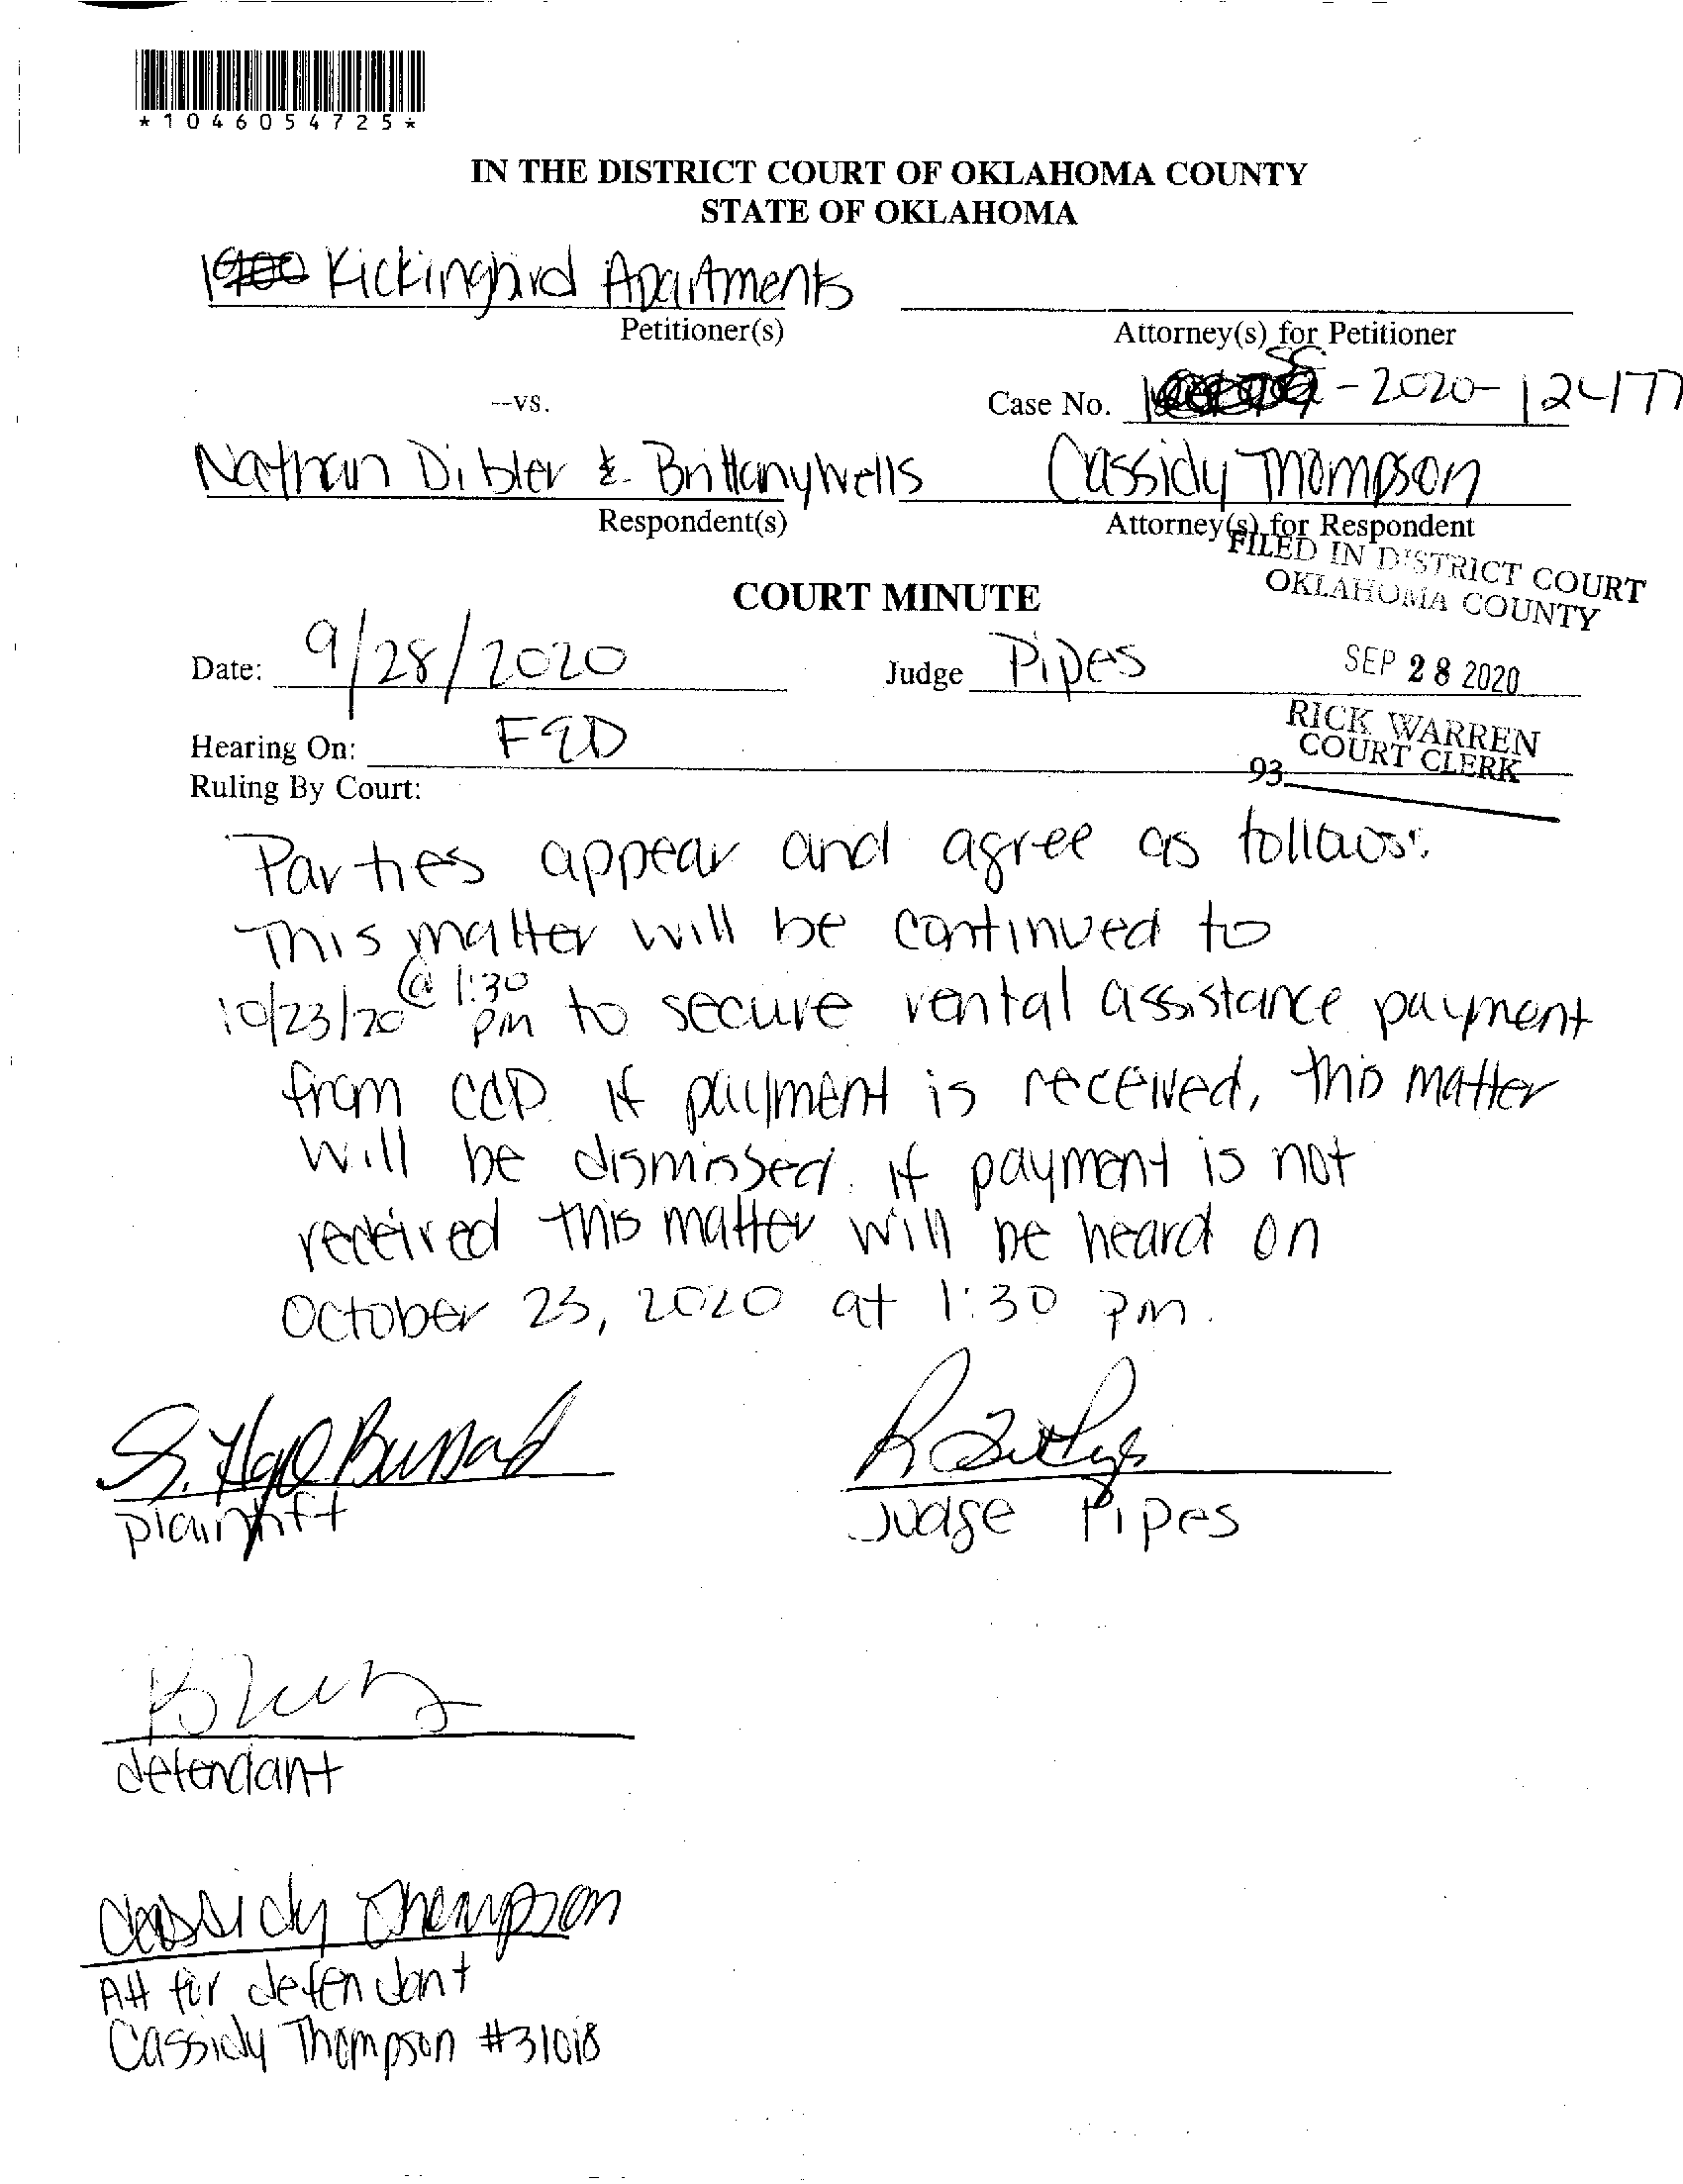 *1046054725*
IN THE DISTRICT COURT OF OKLAHOMA COUNTY
STATE OF OKLAHOMA
Kickingbird Apartments
Petitioner(s)
Attorney(s) for Petitioner
--vs.
Case No. SC-2020-12477
Nathan Dibler & Brittany Wells
Cassidy Thompson
Respondent(s)
Attorney(s) for Respondent
FILED IN DISTRICT COURT
OKLAHOMA COUNTY
COURT MINUTE
Date: 9/28/2020
Judge Pipes
SEP 28 2020
Hearing On: F&D
RICK WARREN
COURT CLERK
93
Ruling By Court:
Parties appear and agree as follows:
This matter will be continued to
10/23/20 @ 1:30 pm to secure rental assistance payment
from CCP. If payment is received, this matter
will be dismissed. If payment is not
received this matter will be heard on
October 23, 2020 at 1:30 pm.
plaintiff
Judge Pipes
defendant
Cassidy Thompson
Att for defendant
Cassidy Thompson #31018